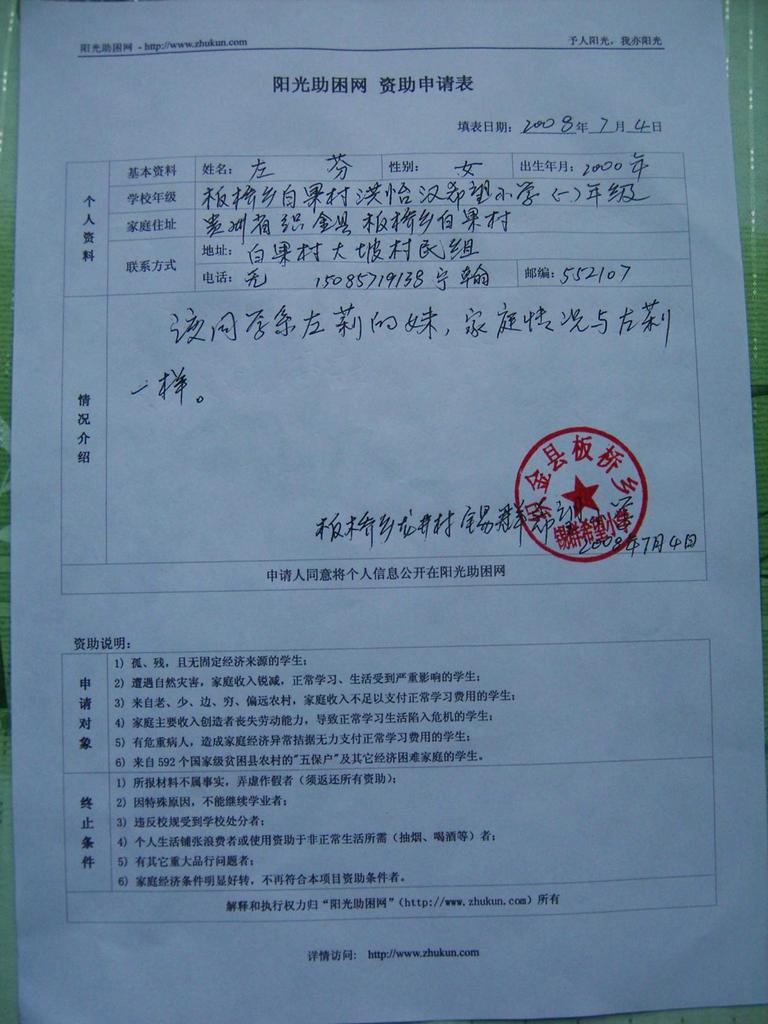 阳光助困网 - http://www.zhukun.com 予人阳光，我亦阳光
阳光助困网 资助申请表
填表日期：2008年7月4日
个人资料
基本资料 姓名：左 芬 性别：女 出生年月：2000年
学校年级 板桥乡白果村洪怡汉希望小学(一)年级
家庭住址 贵州省织金县板桥乡白果村
联系方式 地址：白果村大坡村民组
电话：无 15085719138 宁翰 邮编：552107
情况介绍
该同学系左莉的妹，家庭情况与左莉
一样。
金县板桥乡
锡群希望小学
板桥乡龙井村锡群希
2008年7月4日
申请人同意将个人信息公开在阳光助困网
资助说明：
申请对象
1）孤、残，且无固定经济来源的学生；
2）遭遇自然灾害，家庭收入锐减，正常学习、生活受到严重影响的学生；
3）来自老、少、边、穷、偏远农村，家庭收入不足以支付正常学习费用的学生；
4）家庭主要收入创造者丧失劳动能力，导致正常学习生活陷入危机的学生；
5）有危重病人，造成家庭经济异常拮据无力支付正常学习费用的学生；
6）来自592个国家级贫困县农村的"五保户"及其它经济困难家庭的学生。
终止条件
1）所报材料不属事实，弄虚作假者（须返还所有资助）；
2）因特殊原因，不能继续学业者；
3）违反校规受到学校处分者；
4）个人生活铺张浪费者或使用资助于非正常生活所需（抽烟、喝酒等）者；
5）有其它重大品行问题者；
6）家庭经济条件明显好转，不再符合本项目资助条件者。
解释和执行权力归“阳光助困网”（http://www.zhukun.com）所有
详情访问： http://www.zhukun.com